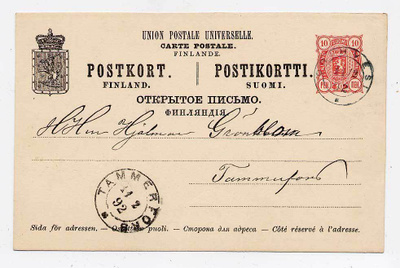 UNION POSTALE UNIVERSELLE.
CARTE POSTALE.
FINLANDE.
POSTKORT. POSTIKORTTI.
FINLAND. SUOMI.
ОТКРЫТОЕ ПИСЬМО.
ФИНЛЯНДІЯ
10 10
PEN.
HHrr Hjalmar Grönblom
Tammerfors
TAMMERFORS
92
Sida för adressen. — puoli. — Сторона для адреса — Côté réservé à l'adresse.